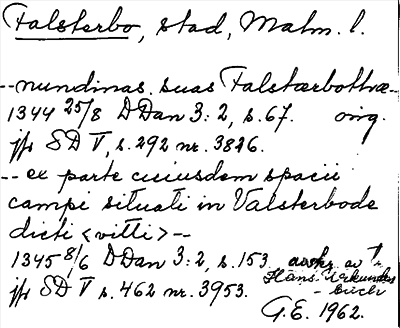 Falsterbo, stad, Malm. l.
--nundinas suas Falstærbothræ--
1344 25/8 DDan 3:2, s.67. orig.
jfr SD V, s.292 nr.3826.
-- ex parte cuiusdem spacii
campi situati in Valsterbode
dicti <vitti>--
1345 8/6 DDan 3:2, s.153 avskr. av Tr. i
Hans. Urkunden
jfr SD V s.462 nr.3953. -buch
G.E. 1962.